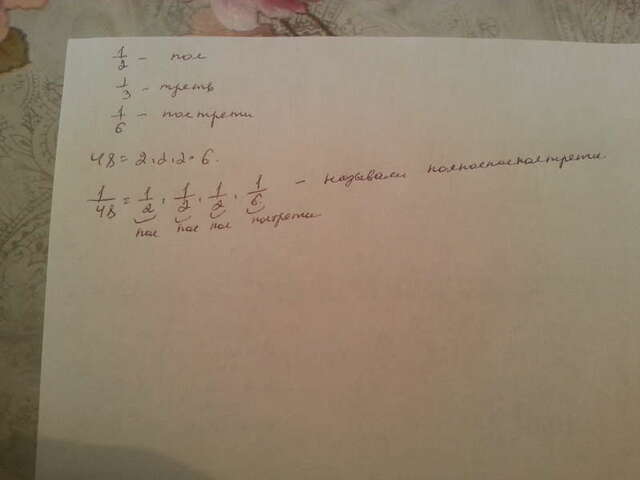 1/2 - пол
1/3 - треть
1/6 - полтрети
48 = 2·2·2·6.
1/48 = 1/2 · 1/2 · 1/2 · 1/6 - называли полполполполтрети
пол пол пол полтрети